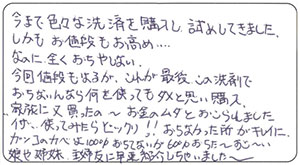 今まで色々な洗済を購入し 試めしてきました。
しかも お値段もお高め‥‥
なのに 全くおちやしない。
今回値段もはるが、これが最後、この洗剤で
おちないんなら何を使ってもダメと思い購入。
家族に又買ったの〜 お金のムダとおこられました
イザ、使ってみたらビックリ!! おちなかった所がキレイに。
カベは100%おちてないが 60%おちた〜すご〜い
娘や姉妹、主婦友に早速紹介しちゃいました〜